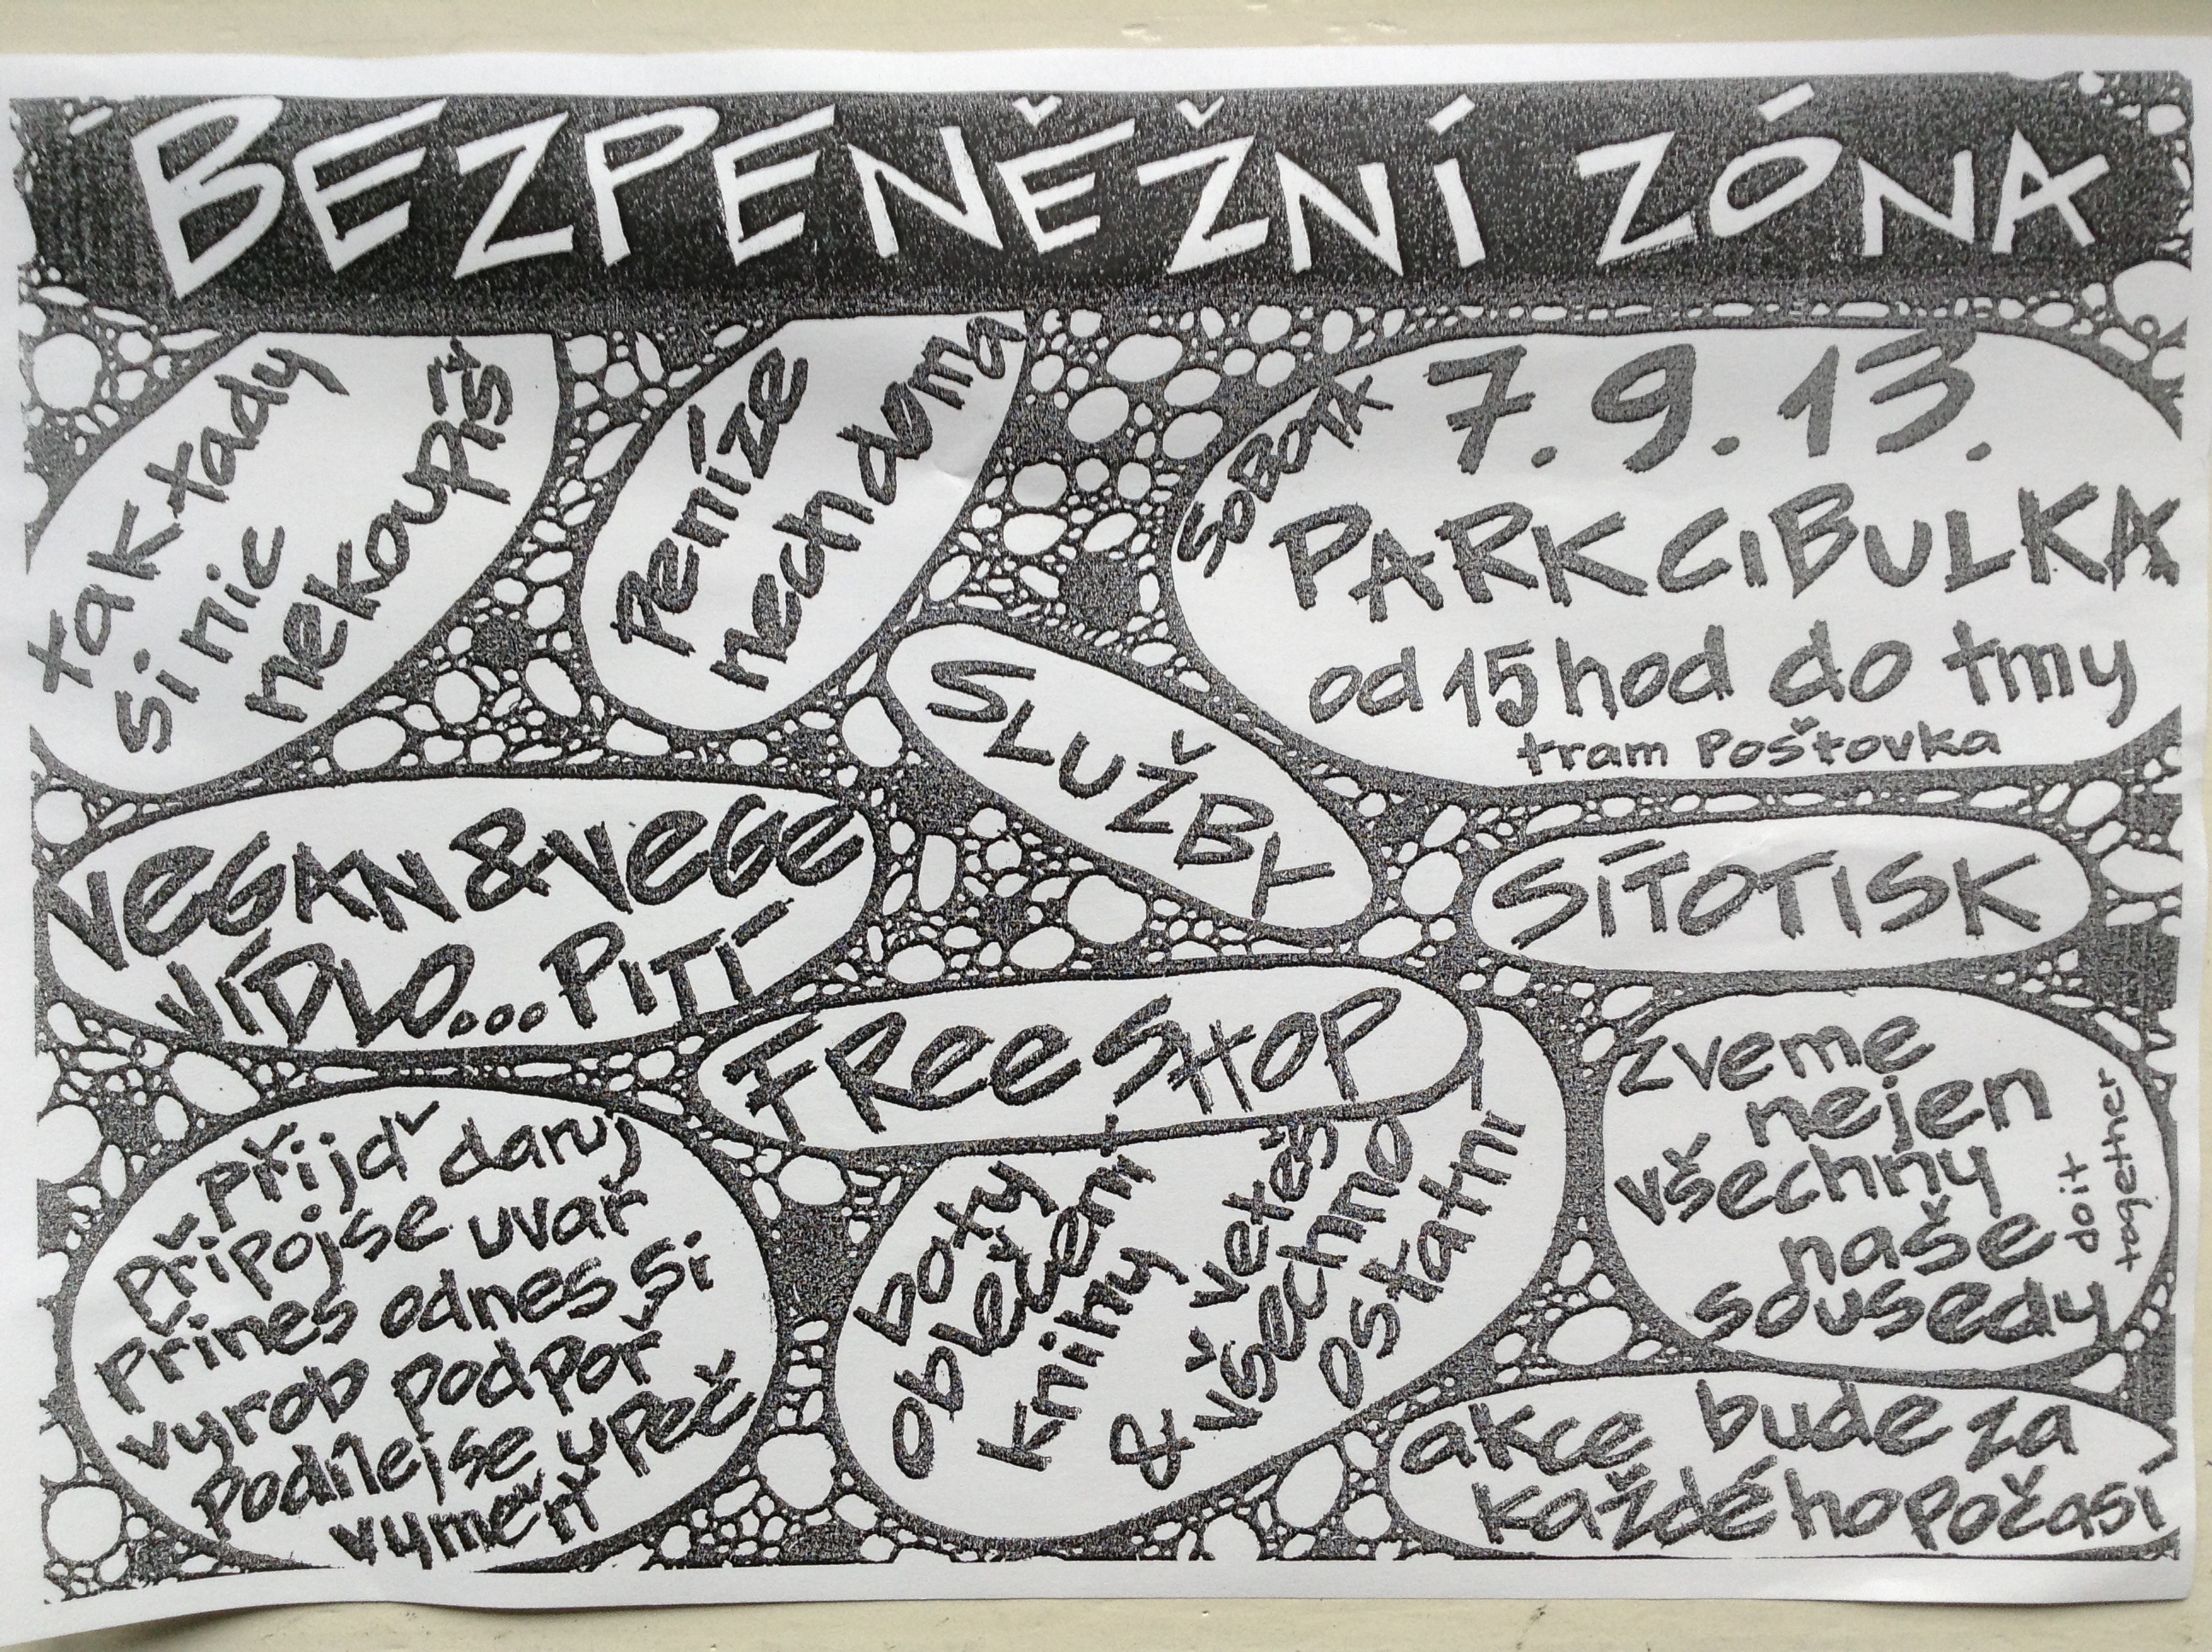 BEZPENĚŽNÍ ZÓNA
tak tady
si nic
nekoupíš
Peníze
nech doma
SOBOTA
7.9.13.
PARK CIBULKA
od 15 hod do tmy
tram Poštovka
SLUŽBY
VEGAN & VEGE
JÍDLO... PITÍ
SÍTOTISK
FREE SHOP
boty
oblečení
knihy
& veteš
všechno
ostatní
zveme
nejen
všechny
naše
sousedy
do it
together
Přijď daruj
Připoj se uvař
Přines odnes si
vyrob podpoř
podílej se upeč
vyměň
akce bude za
každého počasí